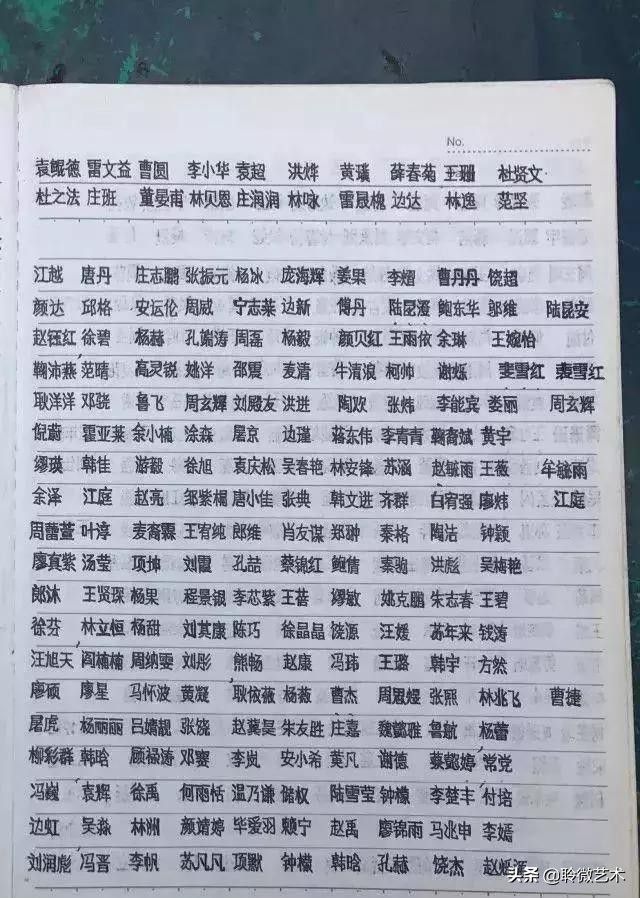 No.
袁鲲德 雷文益 曹圆 李小华 袁超 洪烨 黄瑾 薛春菊 王珊 杜贤文
杜之法 庄班 董晏甫 林贝恩 庄润润 林咏 雷晟槐 边达 林逸 范坚
江越 唐丹 庄志鹏 张振元 杨冰 庞海辉 姜果 李熠 曹丹丹 饶超
颜达 邱格 安运伦 周威 宁志莱 边新 傅丹 陆昆漫 鲍东华 邬维 陆昆安
赵钰红 徐碧 杨赫 孔瀚涛 周磊 杨毅 颜贝红 王雨依 余琳 王婉怡
鞠沛燕 范晴 高灵锐 姚洋 邵震 麦清 牛清浪 柯帅 谢烁 裴雪红
耿洋洋 邓骁 鲁飞 周玄辉 刘殿友 洪进 陶欢 张炜 李能宾 娄丽 周玄辉
倪蔚 霍亚莱 余小楠 涂森 屠京 边瑾 蒋东伟 李青青 鞠育斌 黄宇
缪瑛 韩佳 游毅 徐旭 袁庆松 吴春艳 林安锋 苏涵 赵敏雨 王薇 牟毓雨
余泽 江庭 赵亮 邹紫榍 唐小佳 张典 韩文进 齐群 白宥强 廖炜 江庭
周蕾萱 叶淳 麦裔霖 王宥纯 郎维 肖友谋 郑翀 秦格 陶洁 钟颖
廖真紫 汤莹 项坤 刘霞 孔喆 蔡锦红 鲍倩 秦驰 洪彪 吴梅艳
郎沐 王贤琛 杨果 程景银 李芯紫 王菩 缪敏 姚克鹏 朱志春 王碧
徐芬 林立恒 杨甜 刘其康 陈巧 徐晶晶 饶源 汪媛 苏年来 钱涛
汪旭天 阎楠楠 周纳雯 刘彤 熊畅 赵康 冯玮 王璐 韩宇 方然
廖硕 廖星 马怀波 黄凝 耿依薇 杨薇 曹杰 周思嫚 张熙 林兆飞 曹捷
屠虎 杨丽丽 吕嫱靓 张饶 赵冀昊 朱友胜 庄嘉 魏懿雅 鲁航 杨蕾
柳彩群 韩晗 顾禄涛 邓赛 李岚 安小希 黄凡 谢德 蔡懿婷 常党
冯巍 袁辉 徐禹 何雨恬 温乃谦 储权 陆雪莹 钟檬 李楚丰 付培
边虹 吴淼 林洲 颜婧婷 毕爱羽 赖宁 赵禹 廖锦雨 马兆申 李嫣
刘润彪 冯晋 李帆 苏凡凡 项默 钟檬 韩晗 孔赫 饶杰
头条 @聆微艺术